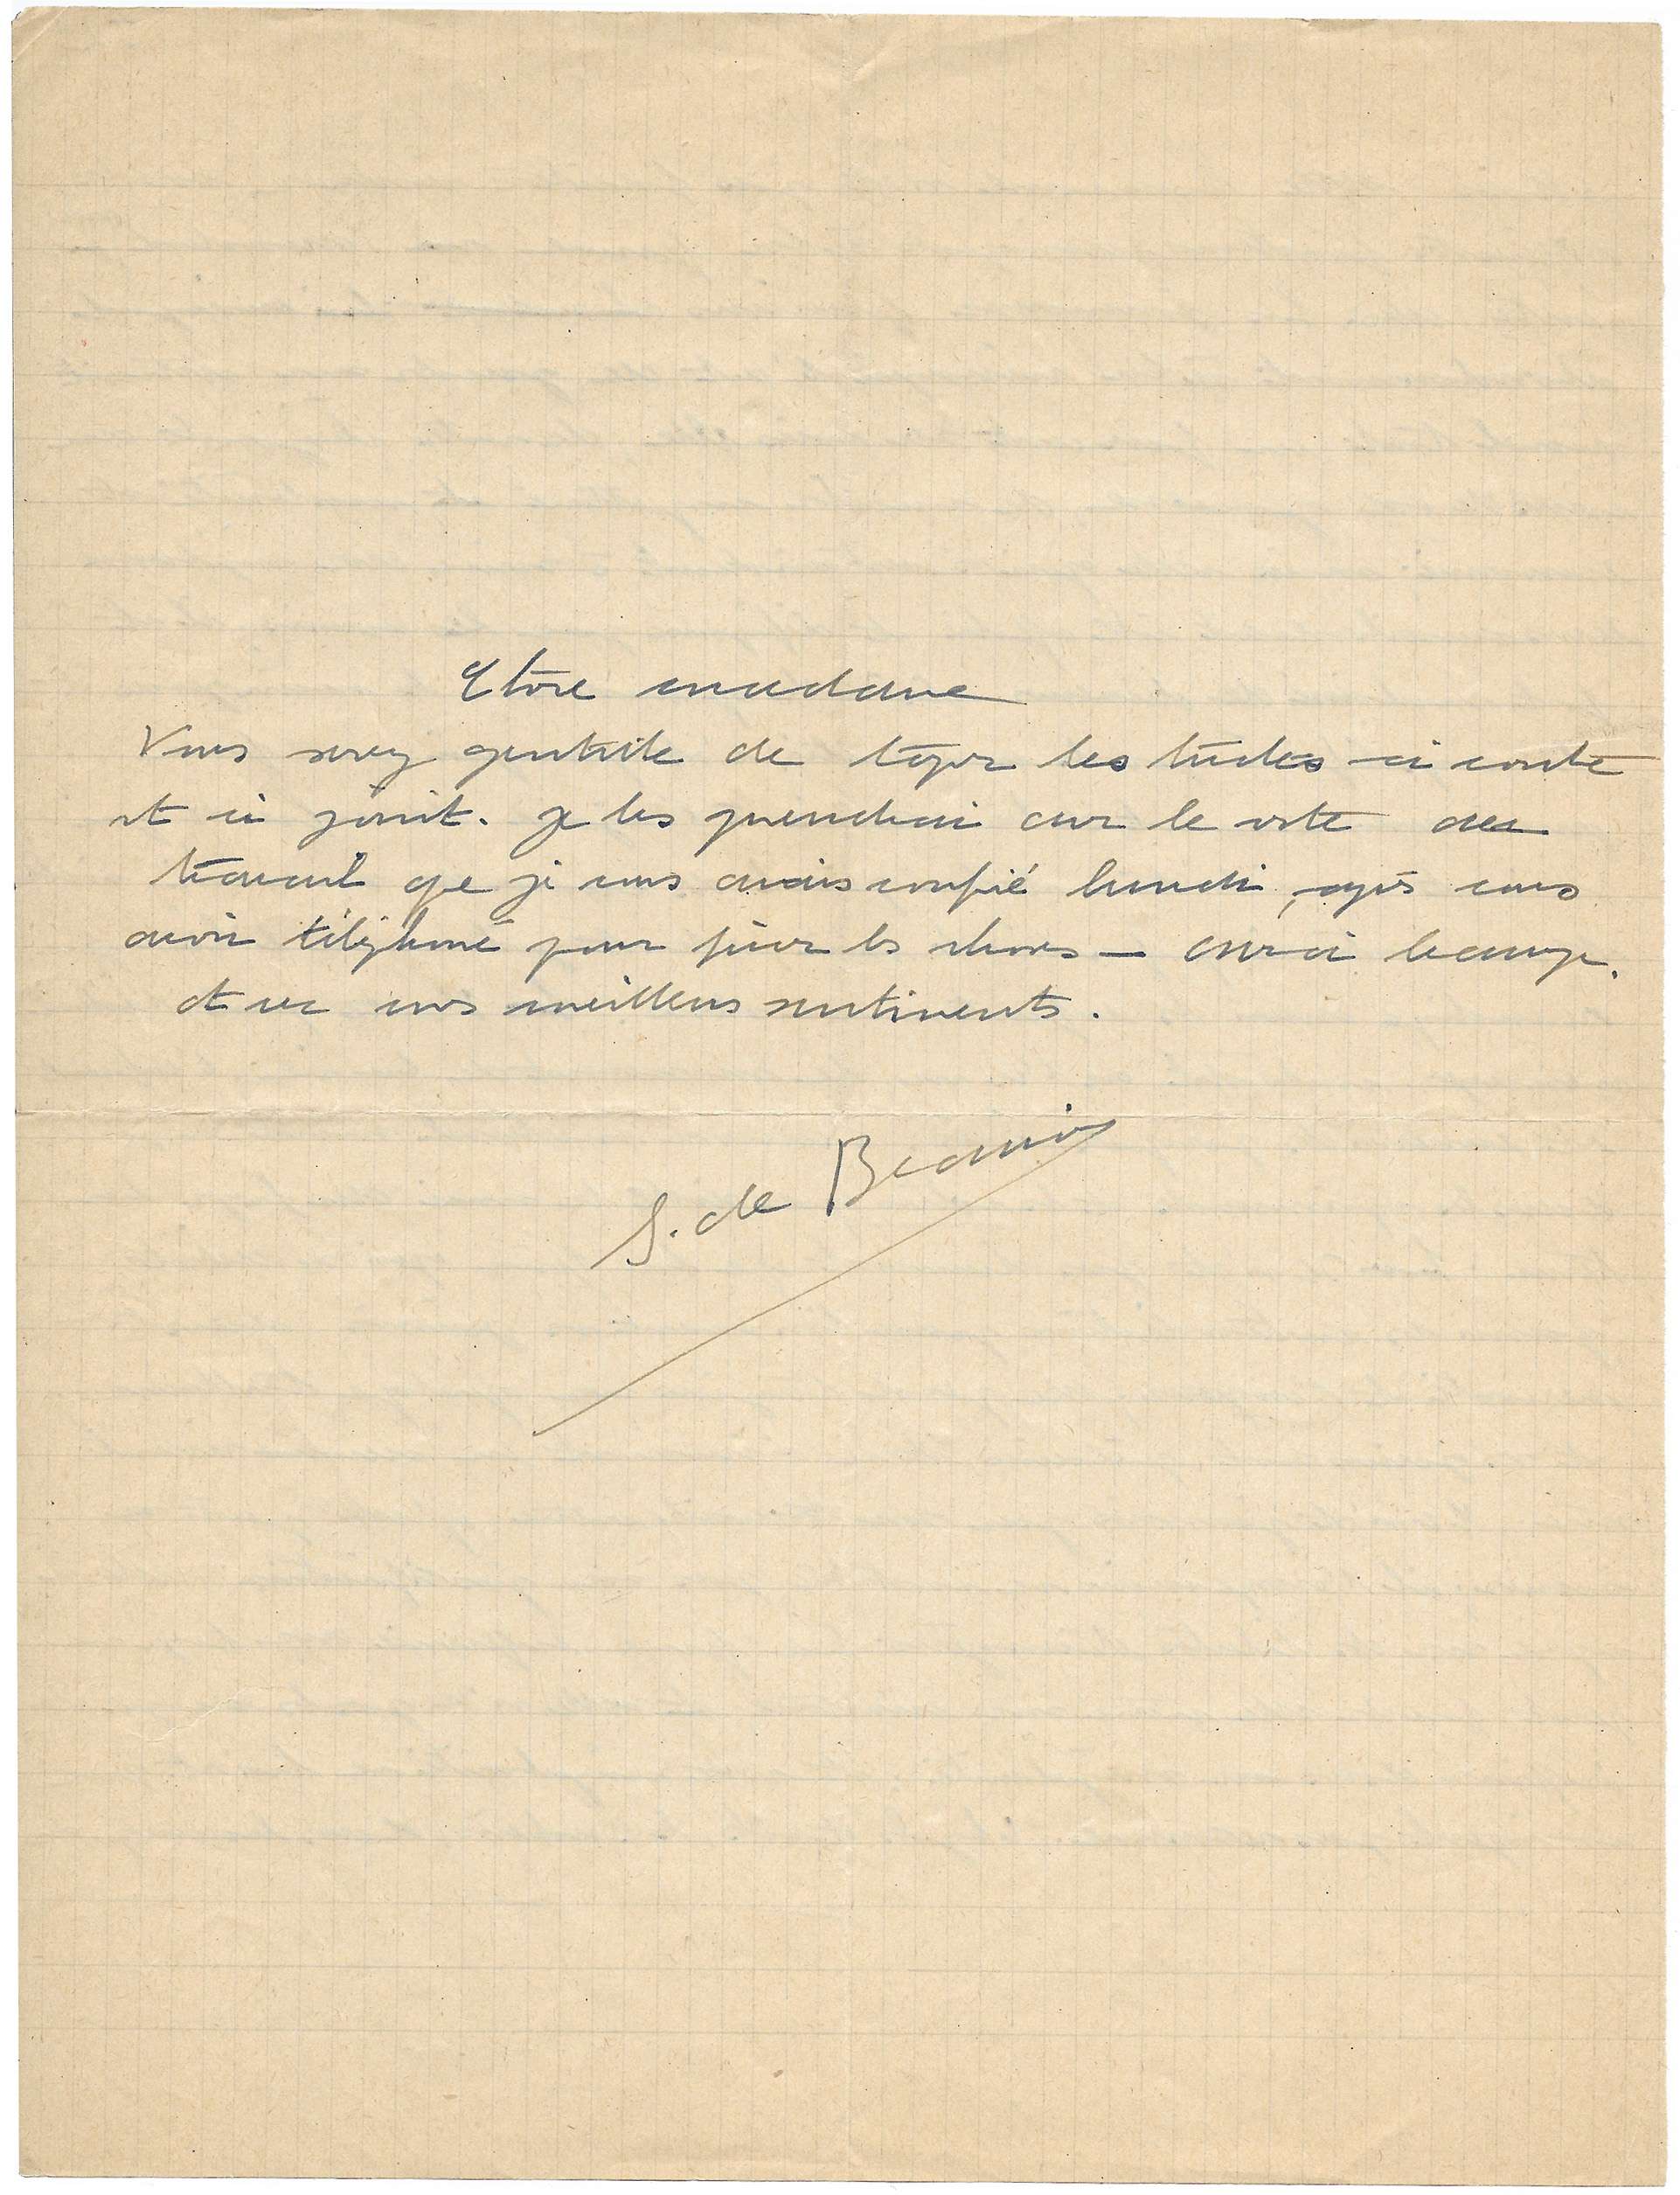 Chère madame
Vous serez gentille de taper les textes ci contre
et ci joint. Je les prendrai avec le reste du
travail que je vous avais confié lundi, après vous
avoir téléphoné pour fixer les choses — merci beaucoup.
et mes meilleurs sentiments.
S. de Beauvoir